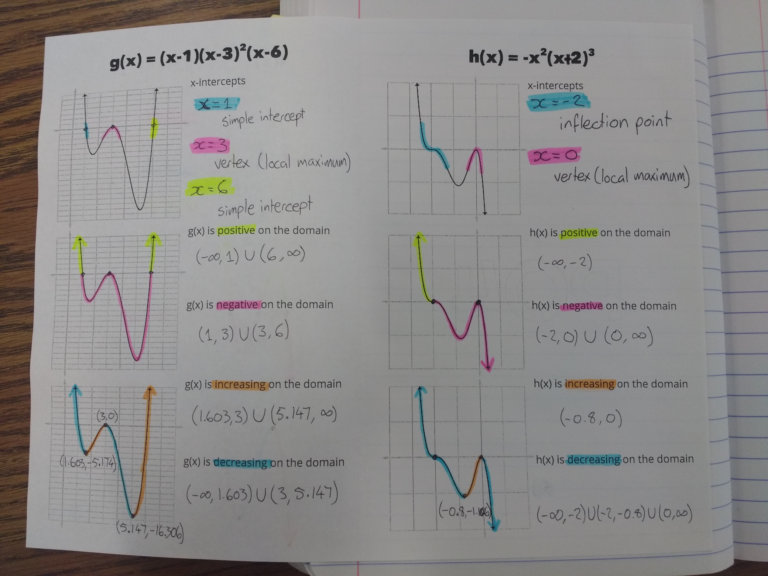 g(x) = (x-1)(x-3)²(x-6)
x-intercepts
x=1
simple intercept
x=3
vertex (local maximum)
x=6
simple intercept
g(x) is positive on the domain
(-∞, 1) ∪ (6, ∞)
g(x) is negative on the domain
(1, 3) ∪ (3, 6)
g(x) is increasing on the domain
(1.603, 3) ∪ (5.147, ∞)
g(x) is decreasing on the domain
(-∞, 1.603) ∪ (3, 5.147)
(3,0)
(1.603, -5.174)
(5.147, -16.306)
h(x) = -x²(x+2)³
x-intercepts
x=-2
inflection point
x=0
vertex (local maximum)
h(x) is positive on the domain
(-∞, -2)
h(x) is negative on the domain
(-2, 0) ∪ (0, ∞)
h(x) is increasing on the domain
(-0.8, 0)
h(x) is decreasing on the domain
(-∞, -2) ∪ (-2, -0.8) ∪ (0, ∞)
(-0.8,